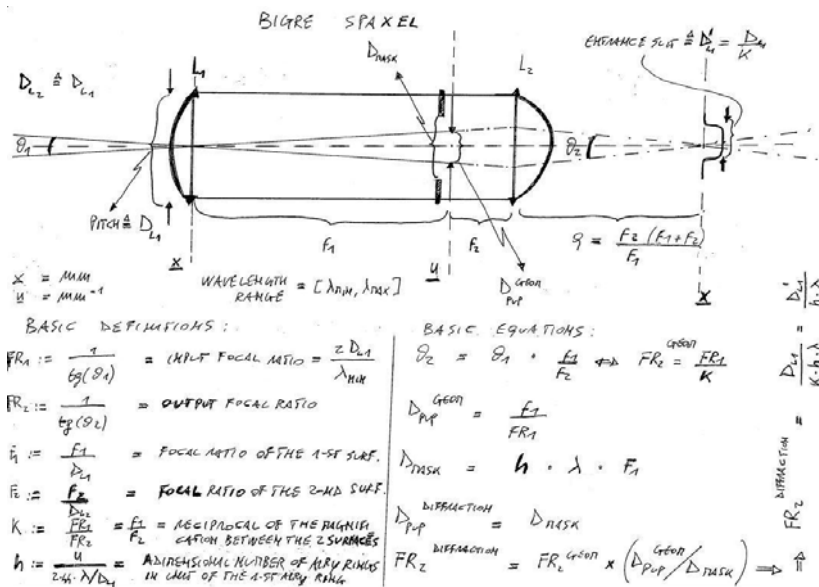 BIGRE SPAXEL
ENTRANCE SLIT ≙ D'L1 = DL1/K
DL2 ≙ DL1
L1
DMASK
L2
ϑ1
ϑ2
PITCH ≙ DL1
F1
F2
q = F2/F1 (F1+F2)
x
u
DPUP^GEOM
x
x = mm
u = mm⁻¹
WAVELENGTH RANGE = [λMIN, λMAX]
BASIC DEFINITIONS:
FR1 := 1/tg(ϑ1) = INPUT FOCAL RATIO = 2 DL1/λMIN
FR2 := 1/tg(ϑ2) = OUTPUT FOCAL RATIO
F1 := f1/DL1 = FOCAL RATIO OF THE 1-ST SURF.
F2 := f2/DL2 = FOCAL RATIO OF THE 2-ND SURF.
K := FR1/FR2 = f1/F2 = RECIPROCAL OF THE MAGNIFI
CATION BETWEEN THE 2 SURFACES
h := u/2.44·λ/DL1 = ADIMENSIONAL NUMBER OF AIRY RINGS
IN UNIT OF THE 1-ST AIRY RING
BASIC EQUATIONS:
ϑ2 = ϑ1 · f1/F2 ⇔ FR2^GEOM = FR1/K
DPUP^GEOM = f1/FR1
DMASK = h · λ · F1
DPUP^DIFFRACTION = DMASK
FR2^DIFFRACTION = FR2^GEOM × (DPUP^GEOM/DMASK) ⇒
⇑ FR2^DIFFRACTION = DL1/K·h·λ = D'L1/h·λ